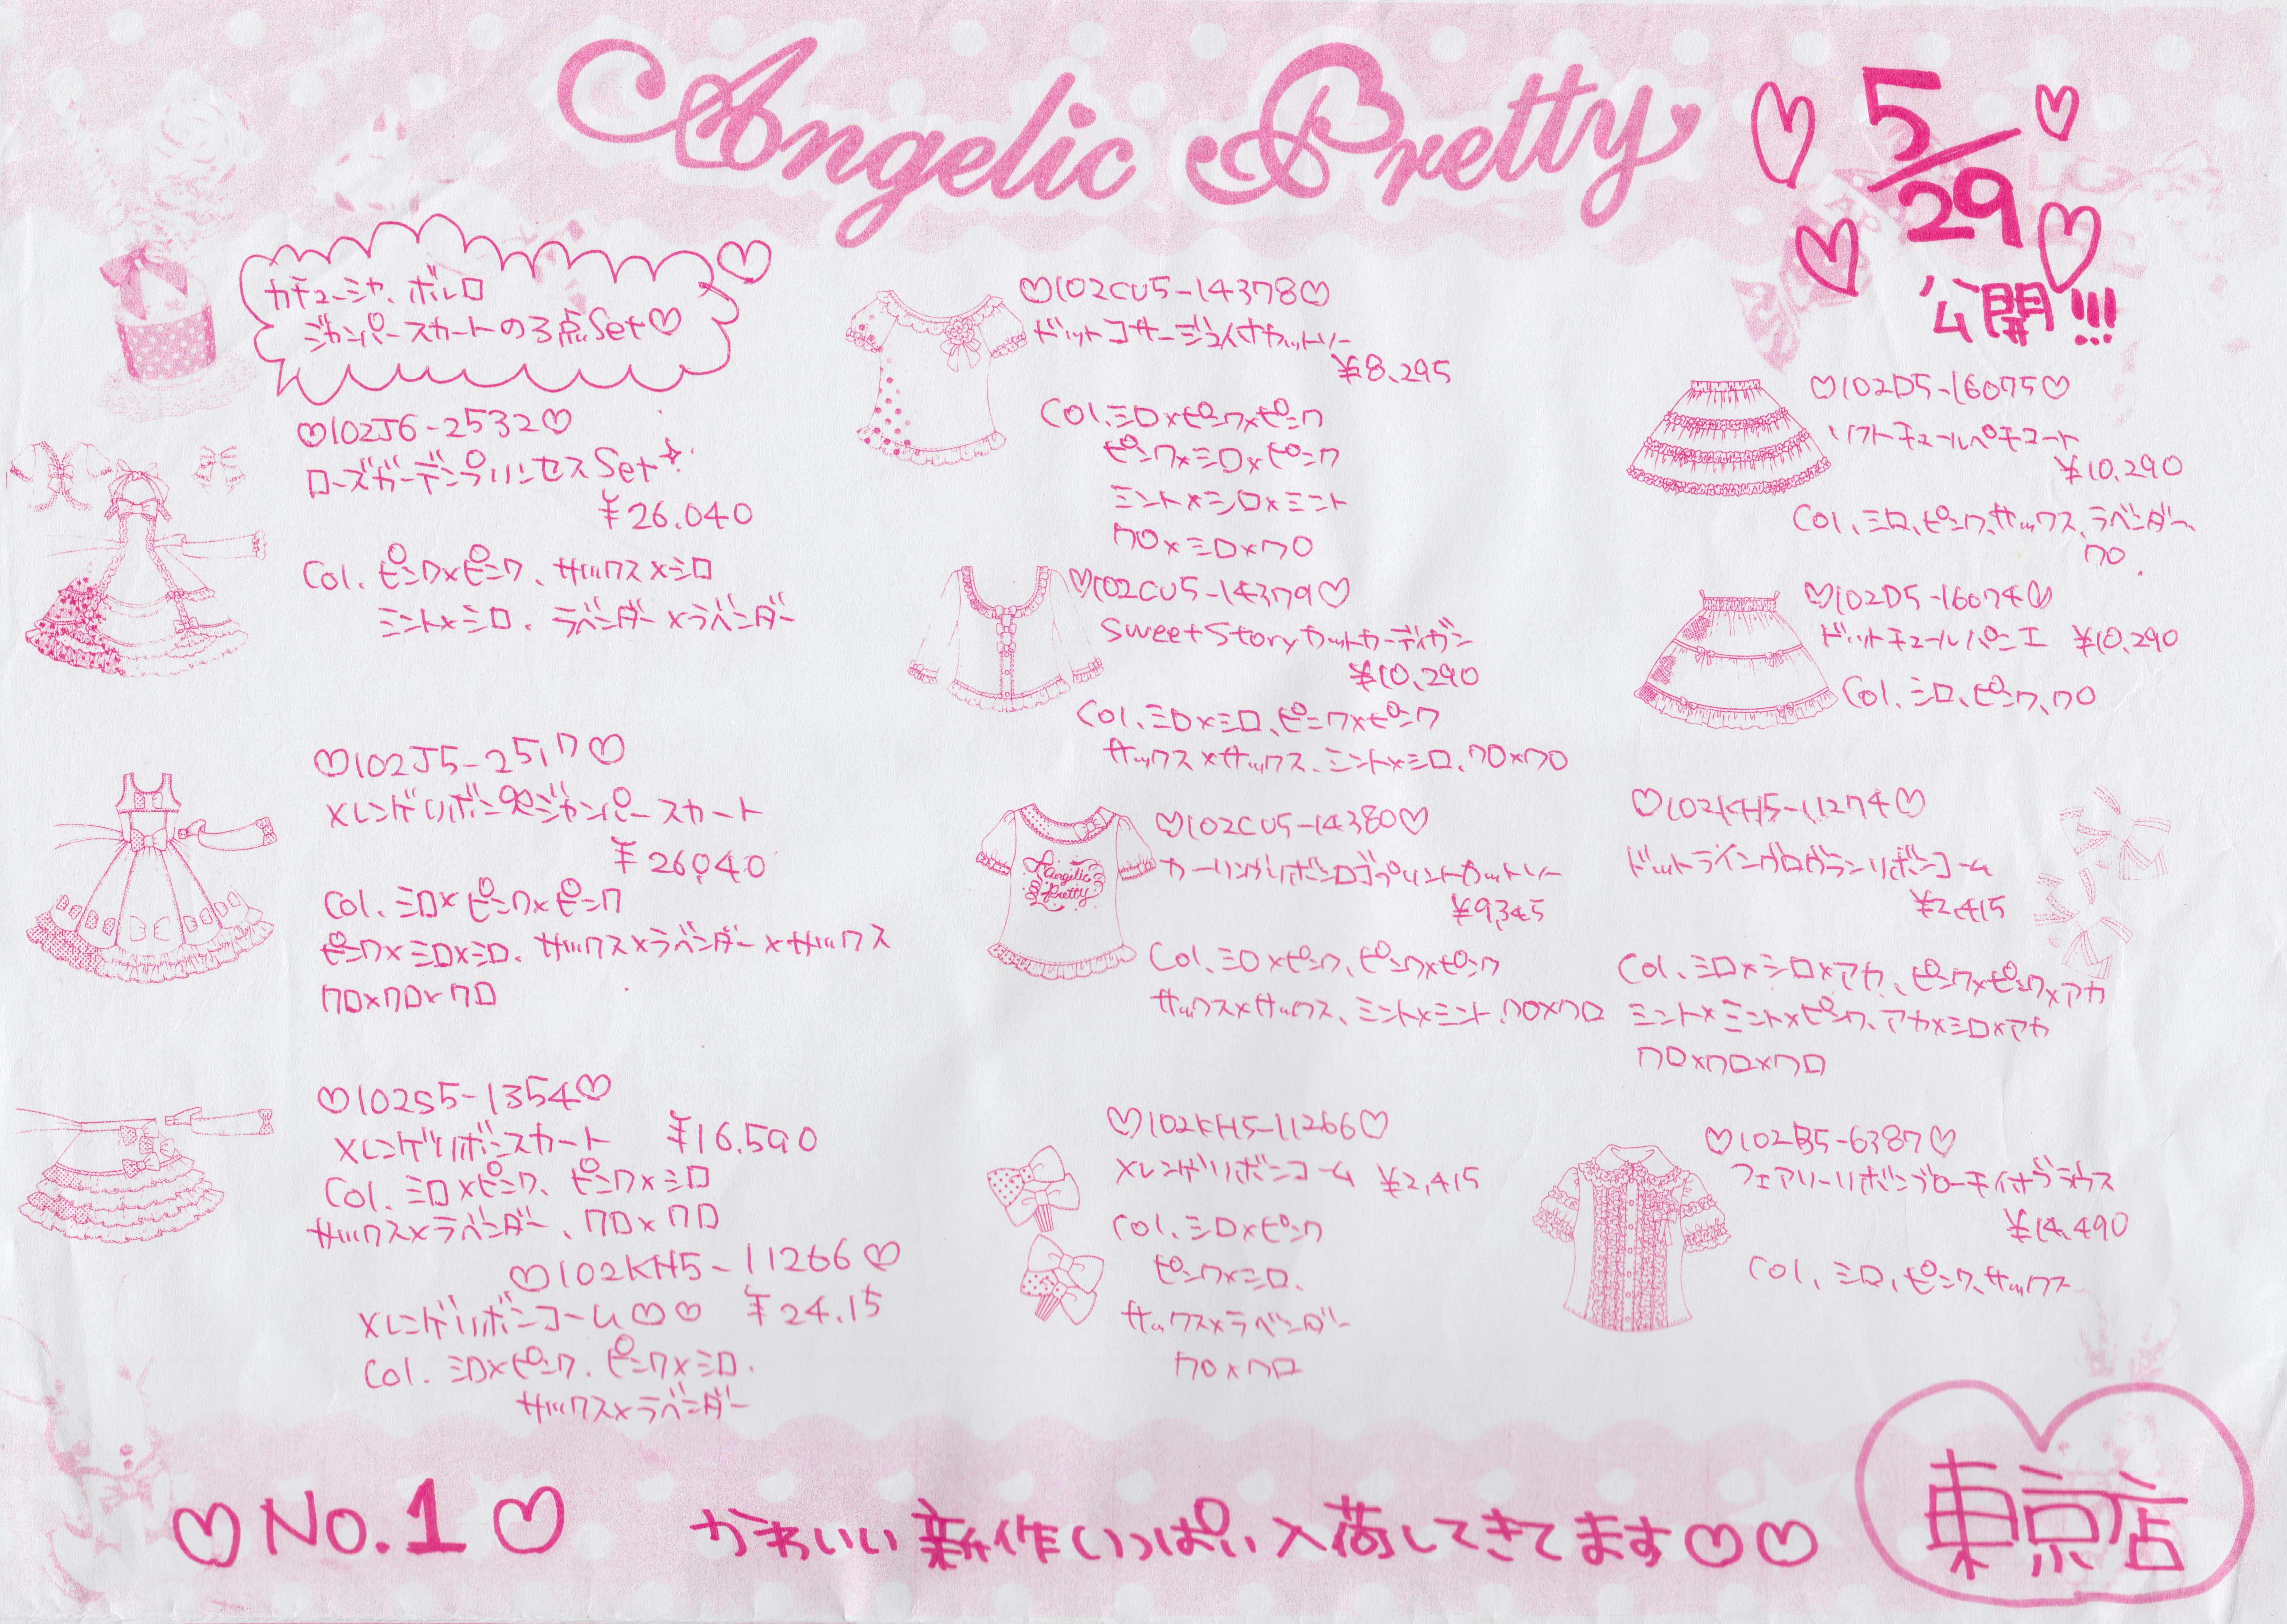 Angelic Pretty
5/29
公開!!!
カチューシャ、ボレロ
ジャンパースカートの3点Set♡
♡102J6-2532♡
ローズガーデンプリンセスSet
¥26.040
Col. ピンク×ピンク、サックス×シロ
ミント×シロ、ラベンダー×ラベンダー
♡102J5-2517♡
メレンゲリボン ジャンパースカート
¥26,040
Col. シロ×ピンク×ピンク
ピンク×シロ×シロ、サックス×ラベンダー×サックス
クロ×クロ×クロ
♡102S5-1354♡
メレンゲリボンスカート ¥16.590
Col. シロ×ピンク、ピンク×シロ
サックス×ラベンダー、クロ×クロ
♡102KH5-11266♡
メレンゲリボンコーム♡♡ ¥24.15
Col. シロ×ピンク. ピンク×シロ.
サックス×ラベンダー
♡102CU5-14378♡
ドットコサージュ付カットソー
¥8.295
Col.シロ×ピンク×ピンク
ピンク×シロ×ピンク
ミント×シロ×ミント
クロ×シロ×クロ
♡102CU5-14379♡
Sweet Story カットカーディガン
¥10.290
Col.シロ×シロ、ピンク×ピンク
サックス×サックス、ミント×シロ、クロ×クロ
Angelic
Pretty
♡102CU5-14380♡
カーリングリボンロゴプリントカットソー
¥9,345
Col.シロ×ピンク、ピンク×ピンク
サックス×サックス、ミント×ミント、クロ×クロ
♡102KH5-11266♡
メレンゲリボンコーム ¥2,415
Col.シロ×ピンク
ピンク×シロ.
サックス×ラベンダー
クロ×クロ
♡102D5-16075♡
ソフトチュールペチコート
¥10,290
Col、シロ、ピンク、サックス、ラベンダー、
クロ
♡102D5-16074♡
ドットチュールパニエ ¥10.290
Col、シロ、ピンク、クロ
♡102KH5-11274♡
ドットライングログランリボンコーム
¥2,415
Col、シロ×シロ×アカ、ピンク×ピンク×アカ
ミント×ミント×ピンク、アカ×シロ×アカ
クロ×クロ×クロ
♡102B5-6387♡
フェアリーリボンブローチ付ブラウス
¥14,490
Col、シロ、ピンク、サックス
♡No.1♡
かわいい新作いっぱい入荷してきてます♡♡
東京店